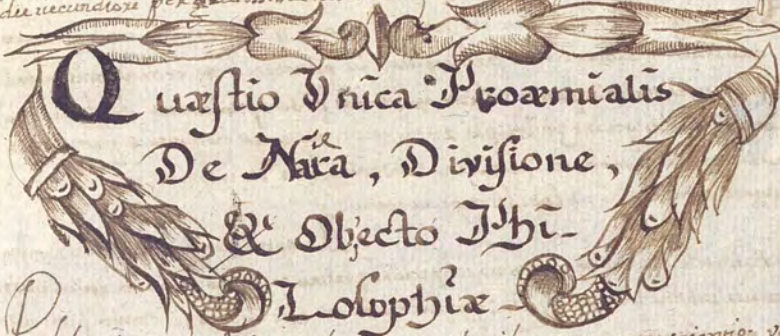 Quæstio Vnica Proæmialis
De Nāra, Divisione,
& Objecto Phi-
Losophiæ